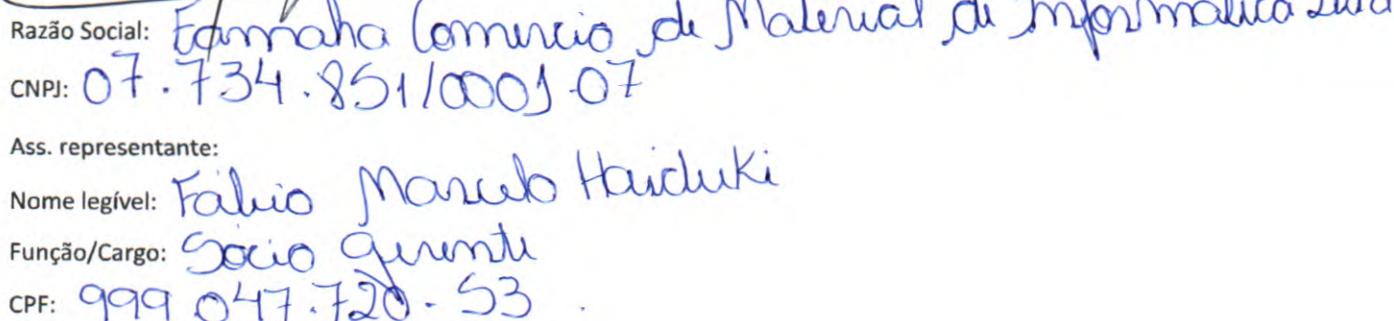 Razão Social: Fammaha Comercio de Material de Informática Ltda
CNPJ: 07.734.851/0001-07
Ass. representante:
Nome legível: Fábio Marcelo Haiduki
Função/Cargo: Sócio Gerente
CPF: 999 047.720-53